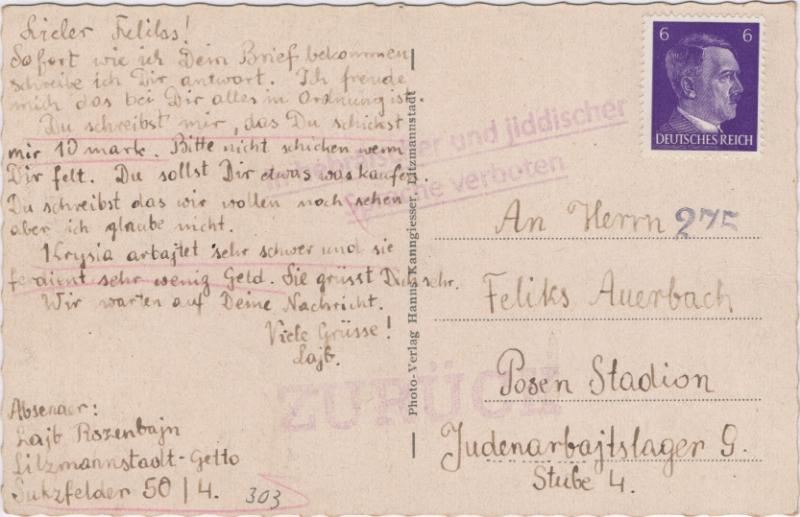 Lieler Feliks!
Sofort wie ich Dein Brief bekommen
schreibe ich Dir antwort. Ich freude
mich das bei Dir alles in Ordnung ist.
Du schreibst mir, das Du schickst
mir 10 mark. Bitte nicht schicken wenn
Dir felt. Du sollst Dir etwas was kaufen.
Du schreibst das wir wollen noch sehen
aber ich glaube nicht.
Krysia arbajtet sehr schwer und sie
ferdient sehr wenig Geld. Sie grüsst Dich sehr.
Wir warten auf Deine Nachricht.
Viele Grüsse!
Lajb.
Absender:
Lajb Rozenbajn
Litzmannstadt-Getto
Sulzfelder 50/4.
303
Photo-Verlag Hanns Kanngiesser, Litzmannstadt
In hebräischer und jiddischer
Sprache verboten
ZURÜCK
6 6
DEUTSCHES REICH
An Herrn 275
Feliks Auerbach
Posen Stadion
Judenarbajtslager G.
Stube 4.